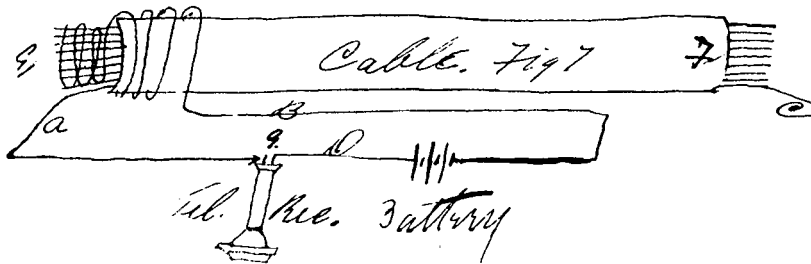 E
Cable. Fig 7
F
C
a
B
g.
D
Tel. Rec. Battery